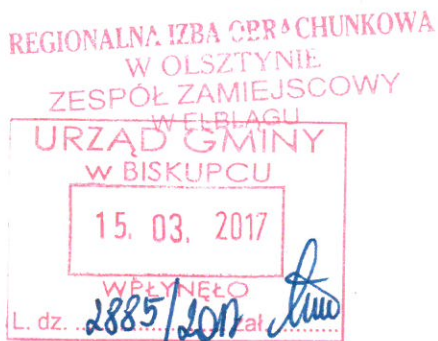 REGIONALNA IZBA OBRACHUNKOWA
W OLSZTYNIE
ZESPÓŁ ZAMIEJSCOWY
W ELBLĄGU
URZĄD GMINY
W BISKUPCU
15. 03. 2017
WPŁYNĘŁO
L. dz. 2885/2017 Zał.